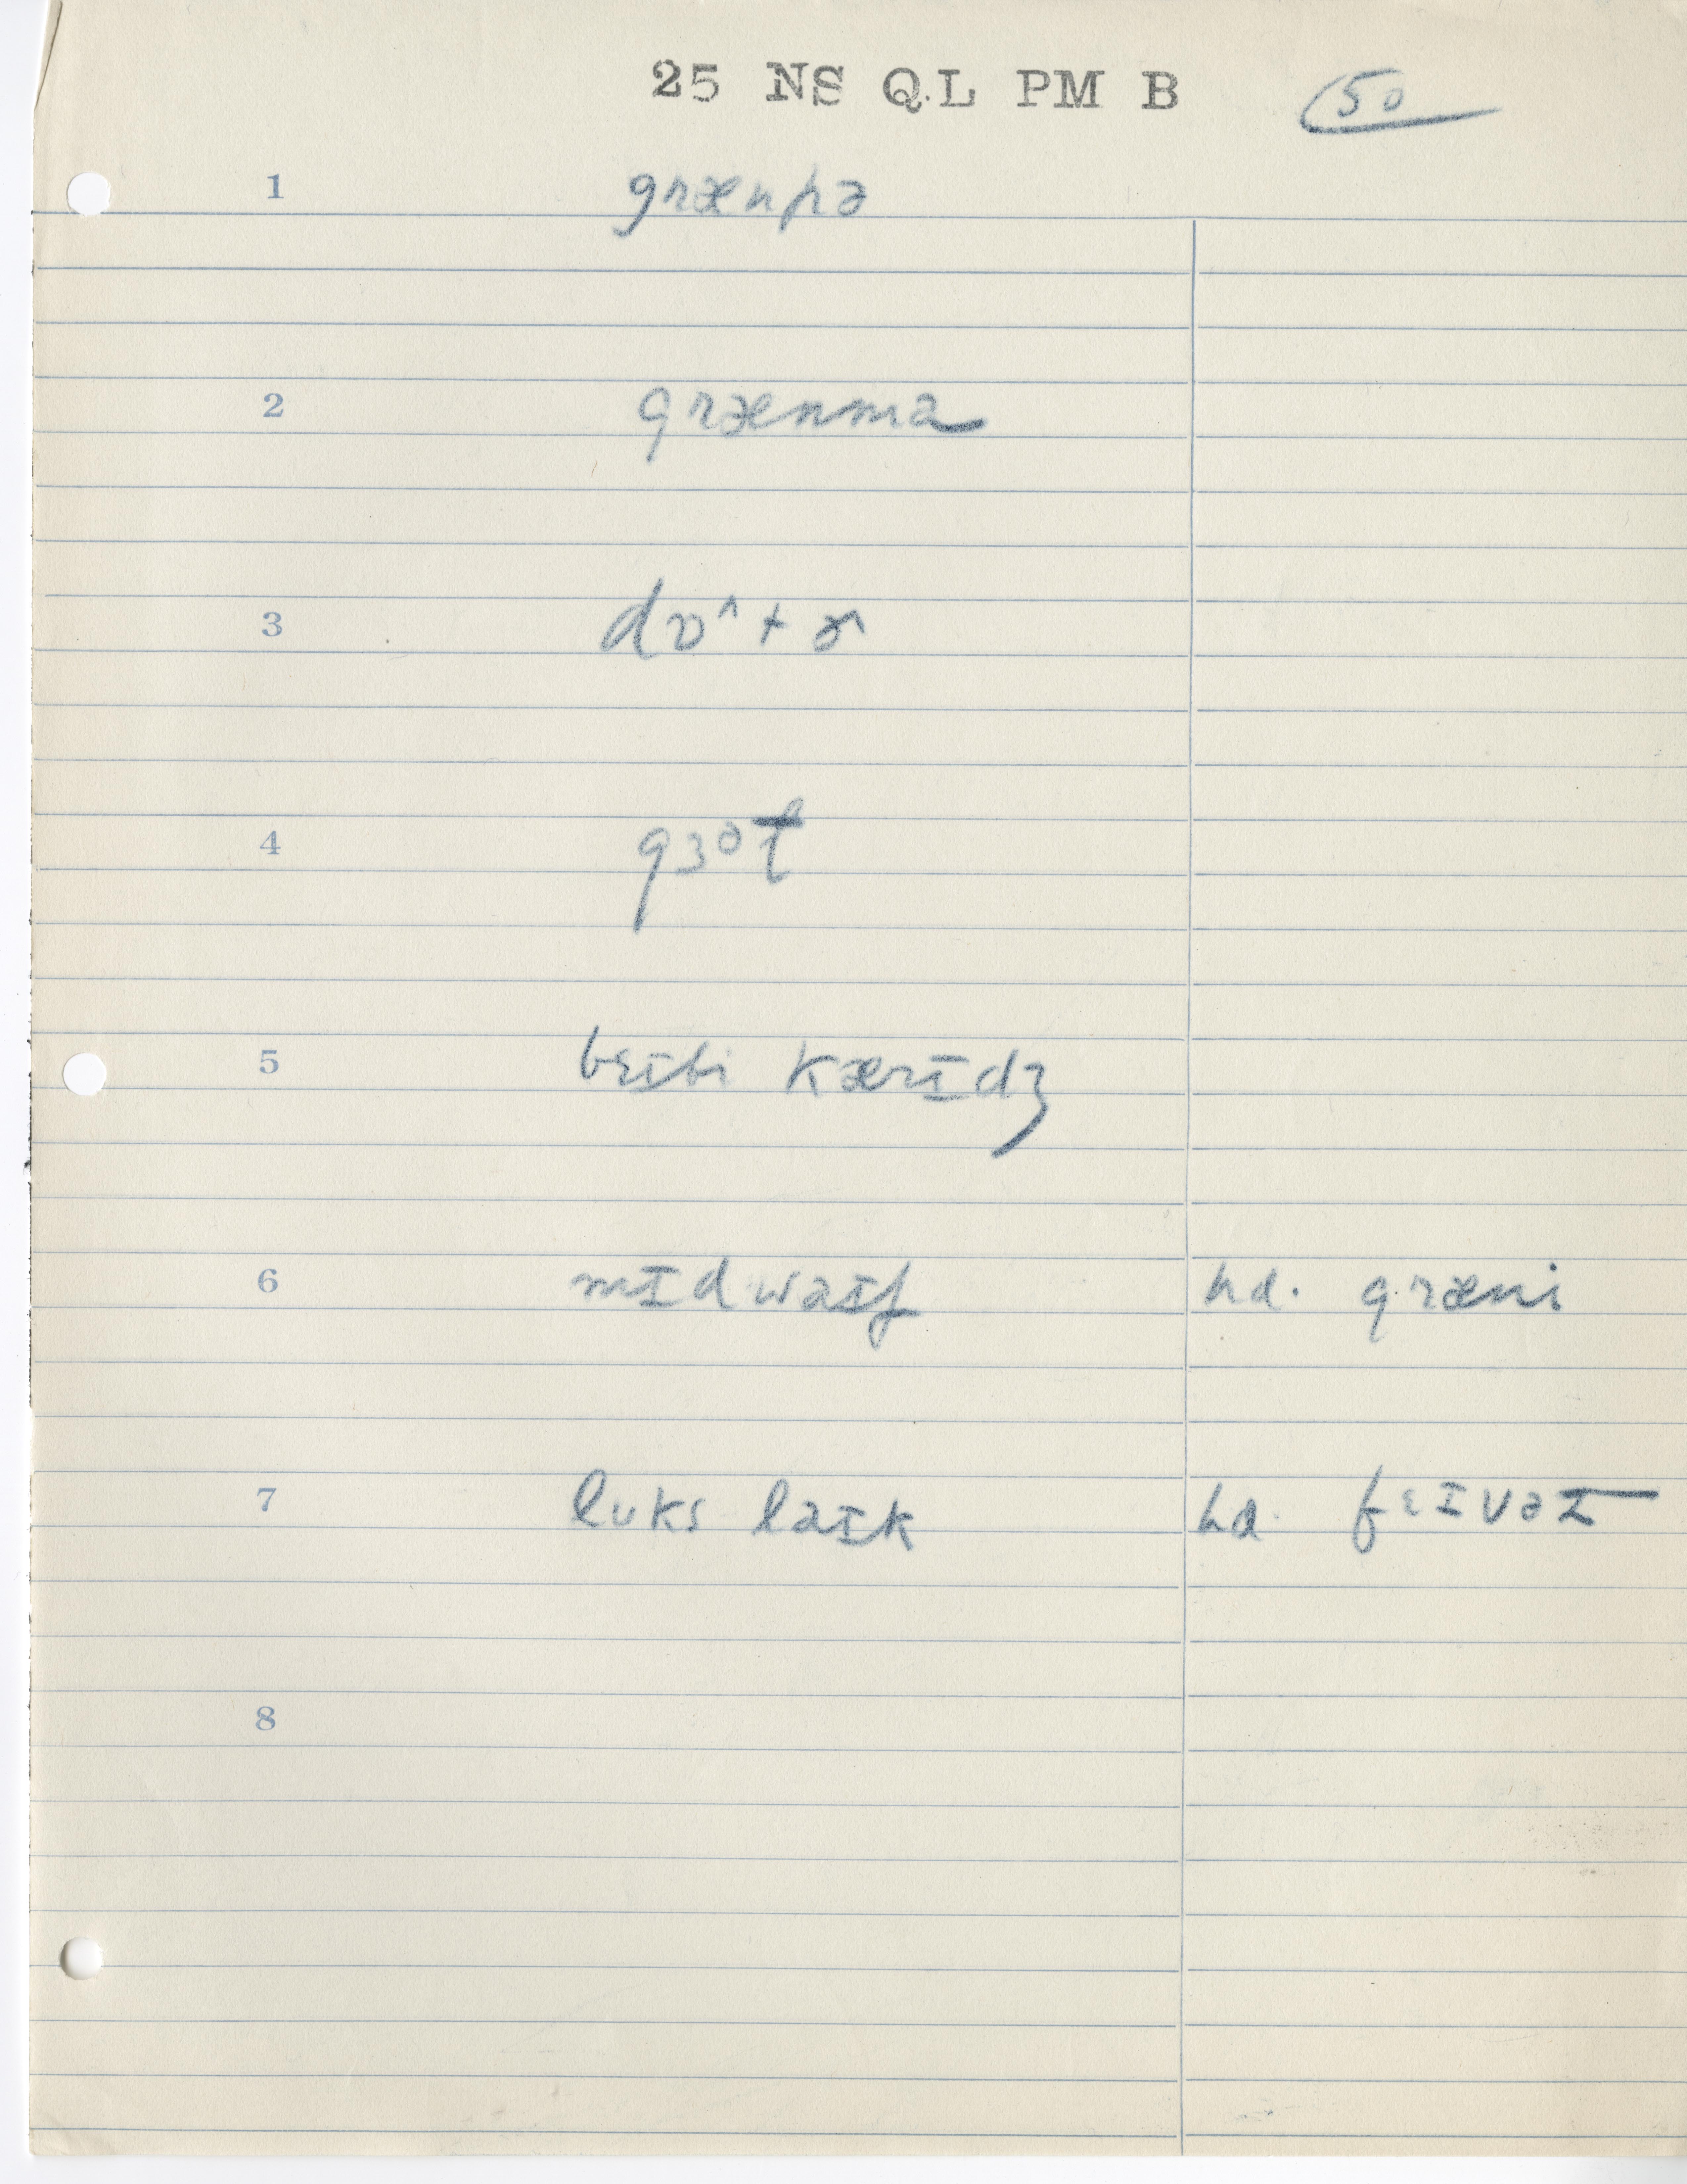 25 NS QL PM B 50
1 grænpə
2 grænmə
3 dɒ^tɚ^
4 gɜᵊɫ
5 bɛɪbi kærɪdʒ
6 mɪdwaɪf hd. græni
7 lʊks laɪk hd. fɛɪvəɪ
8